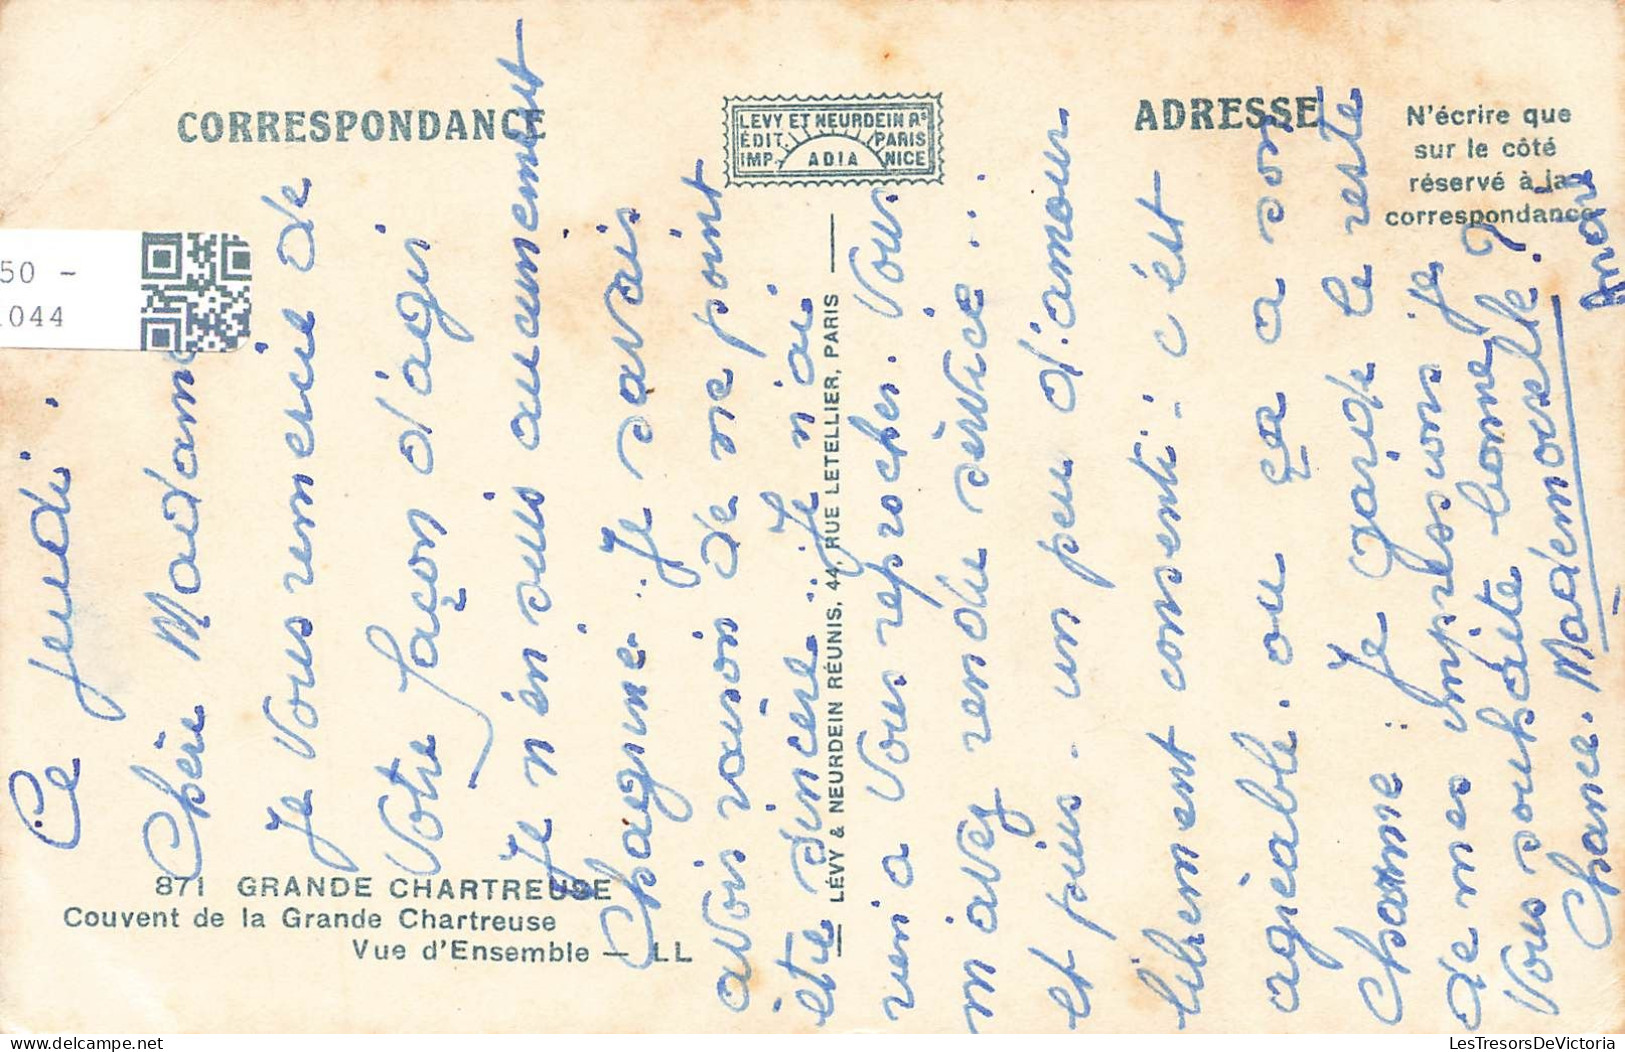 CORRESPONDANCE
LEVY ET NEURDEIN Rˢ
ÉDIT. PARIS
IMP. ADIA NICE
ADRESSE
N'écrire que
sur le côté
réservé à la
correspondance
50 -
1044
LÉVY & NEURDEIN RÉUNIS, 44, RUE LETELLIER, PARIS
871 GRANDE CHARTREUSE
Couvent de la Grande Chartreuse
Vue d'Ensemble — LL
Ce jeudi.
Chère Madame
Je vous remercie de
votre façon d'agir
Je n'en suis aucunement
chagriné.. Je savais
avoir raison de ne point
être sincère.. Je n'ai
rien a vous reprocher. Vous
m'avez rendu service...
et puis. un peu d'amour
librement consenti.. c'est
agréable. ou ça a son
charme.. Je garde le reste
de mes impressions je
vous souhaite bonne
chance. Mademoiselle. ?
André